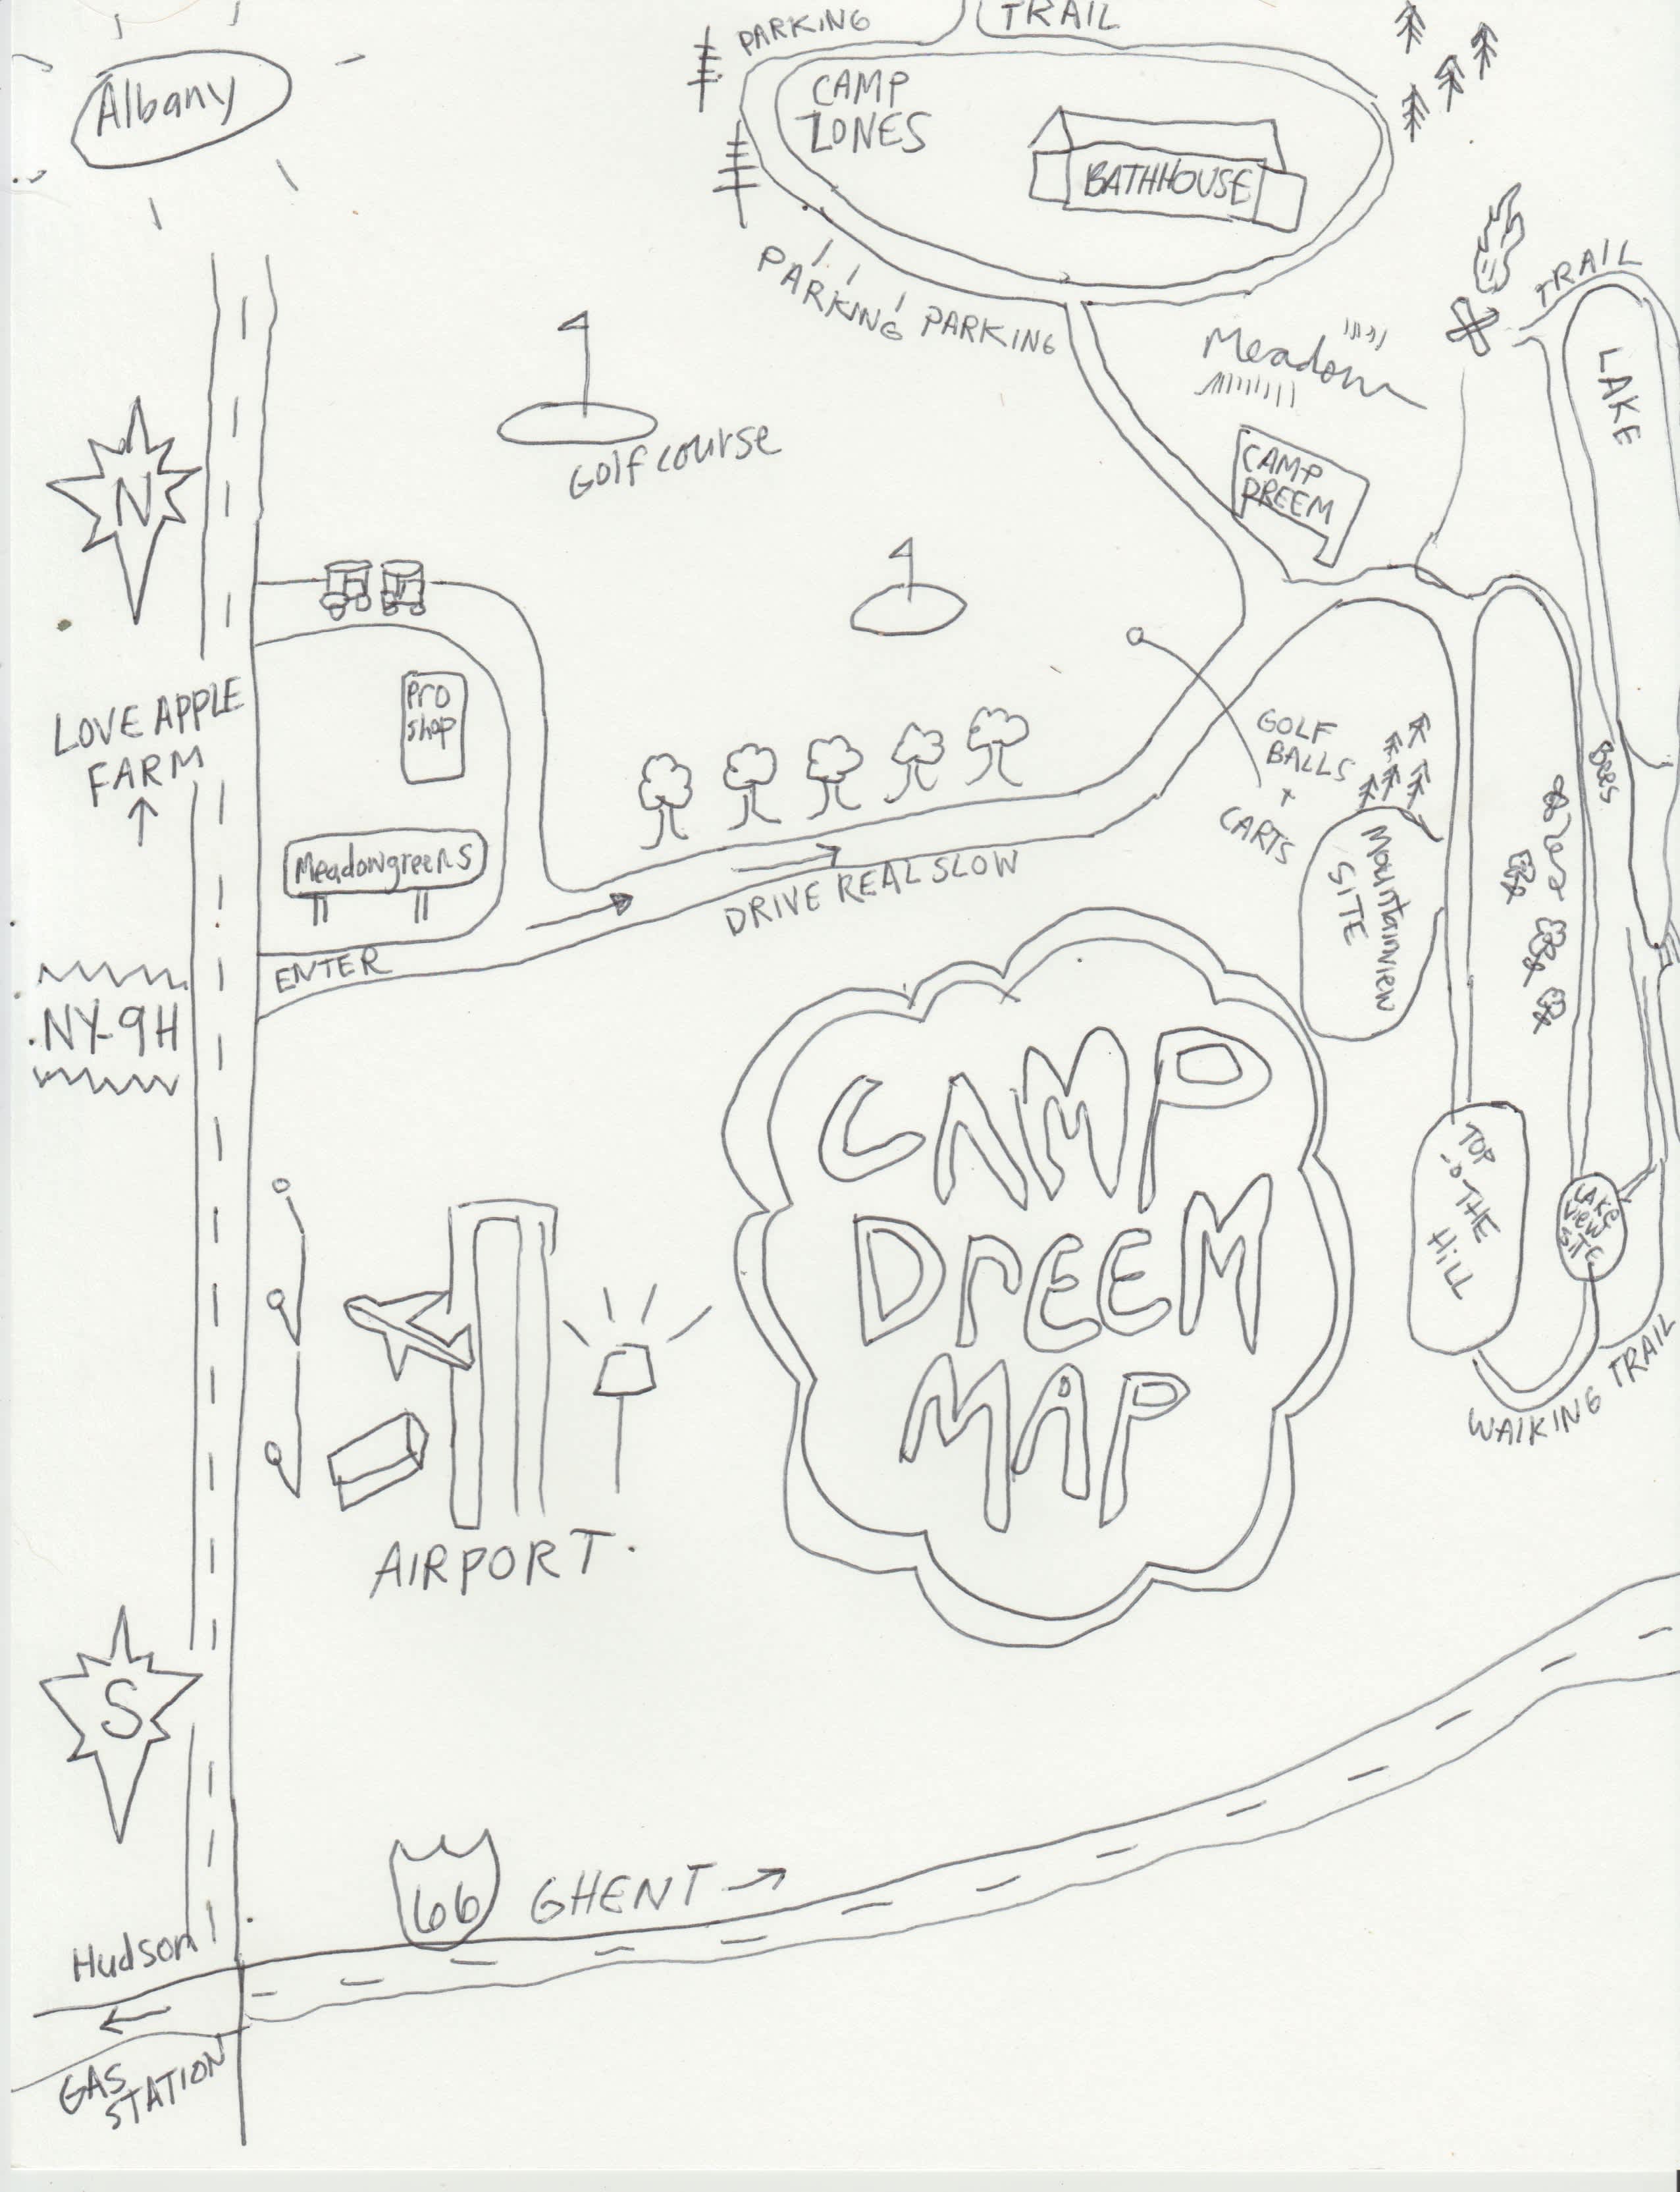 PARKING
TRAIL
Albany
CAMP
ZONES
BATHHOUSE
PARKING
PARKING
TRAIL
Meadow
LAKE
Golf course
CAMP
DREEM
N
LOVE APPLE
FARM
Pro
shop
GOLF
BALLS
+
CARTS
Bees
Meadowgreens
DRIVE REAL SLOW
Mountainview
SITE
ENTER
NY-9H
CAMP
DREEM
MAP
TOP
-O THE
Hill
LAKE
View
SITE
WALKING TRAIL
AIRPORT.
S
66
GHENT
Hudson
GAS
STATION